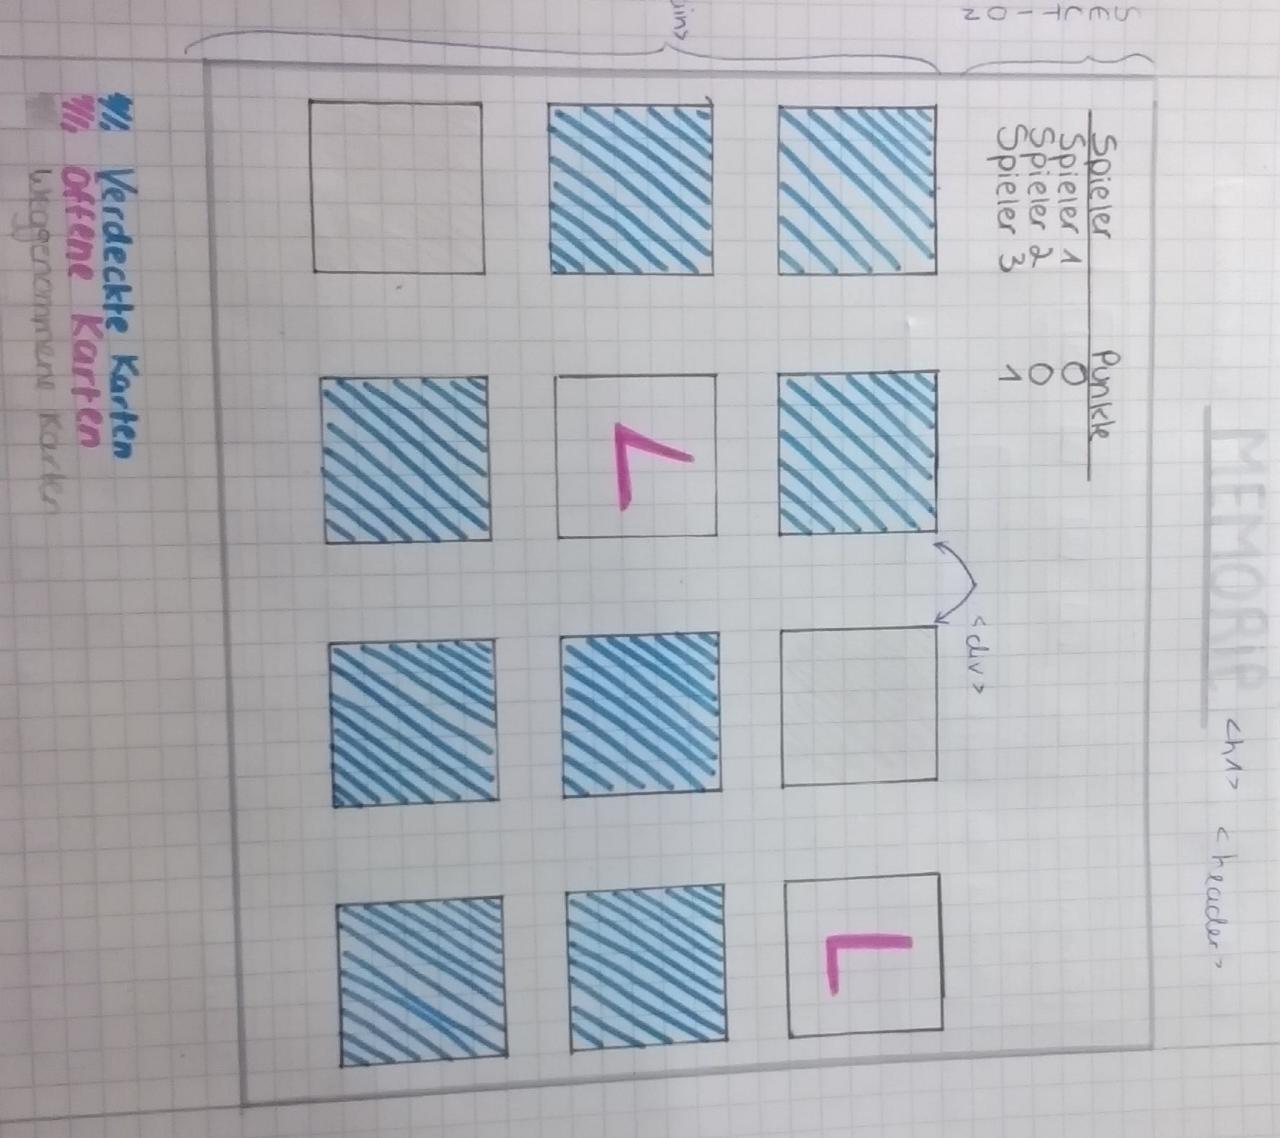 MEMORIE
<h1>
<header>
SECTION
Spieler Punkte
Spieler 1 0
Spieler 2 0
Spieler 3 1
<div>
L
L
Verdeckte Karten
Offene Karten
Weggenommene Karten